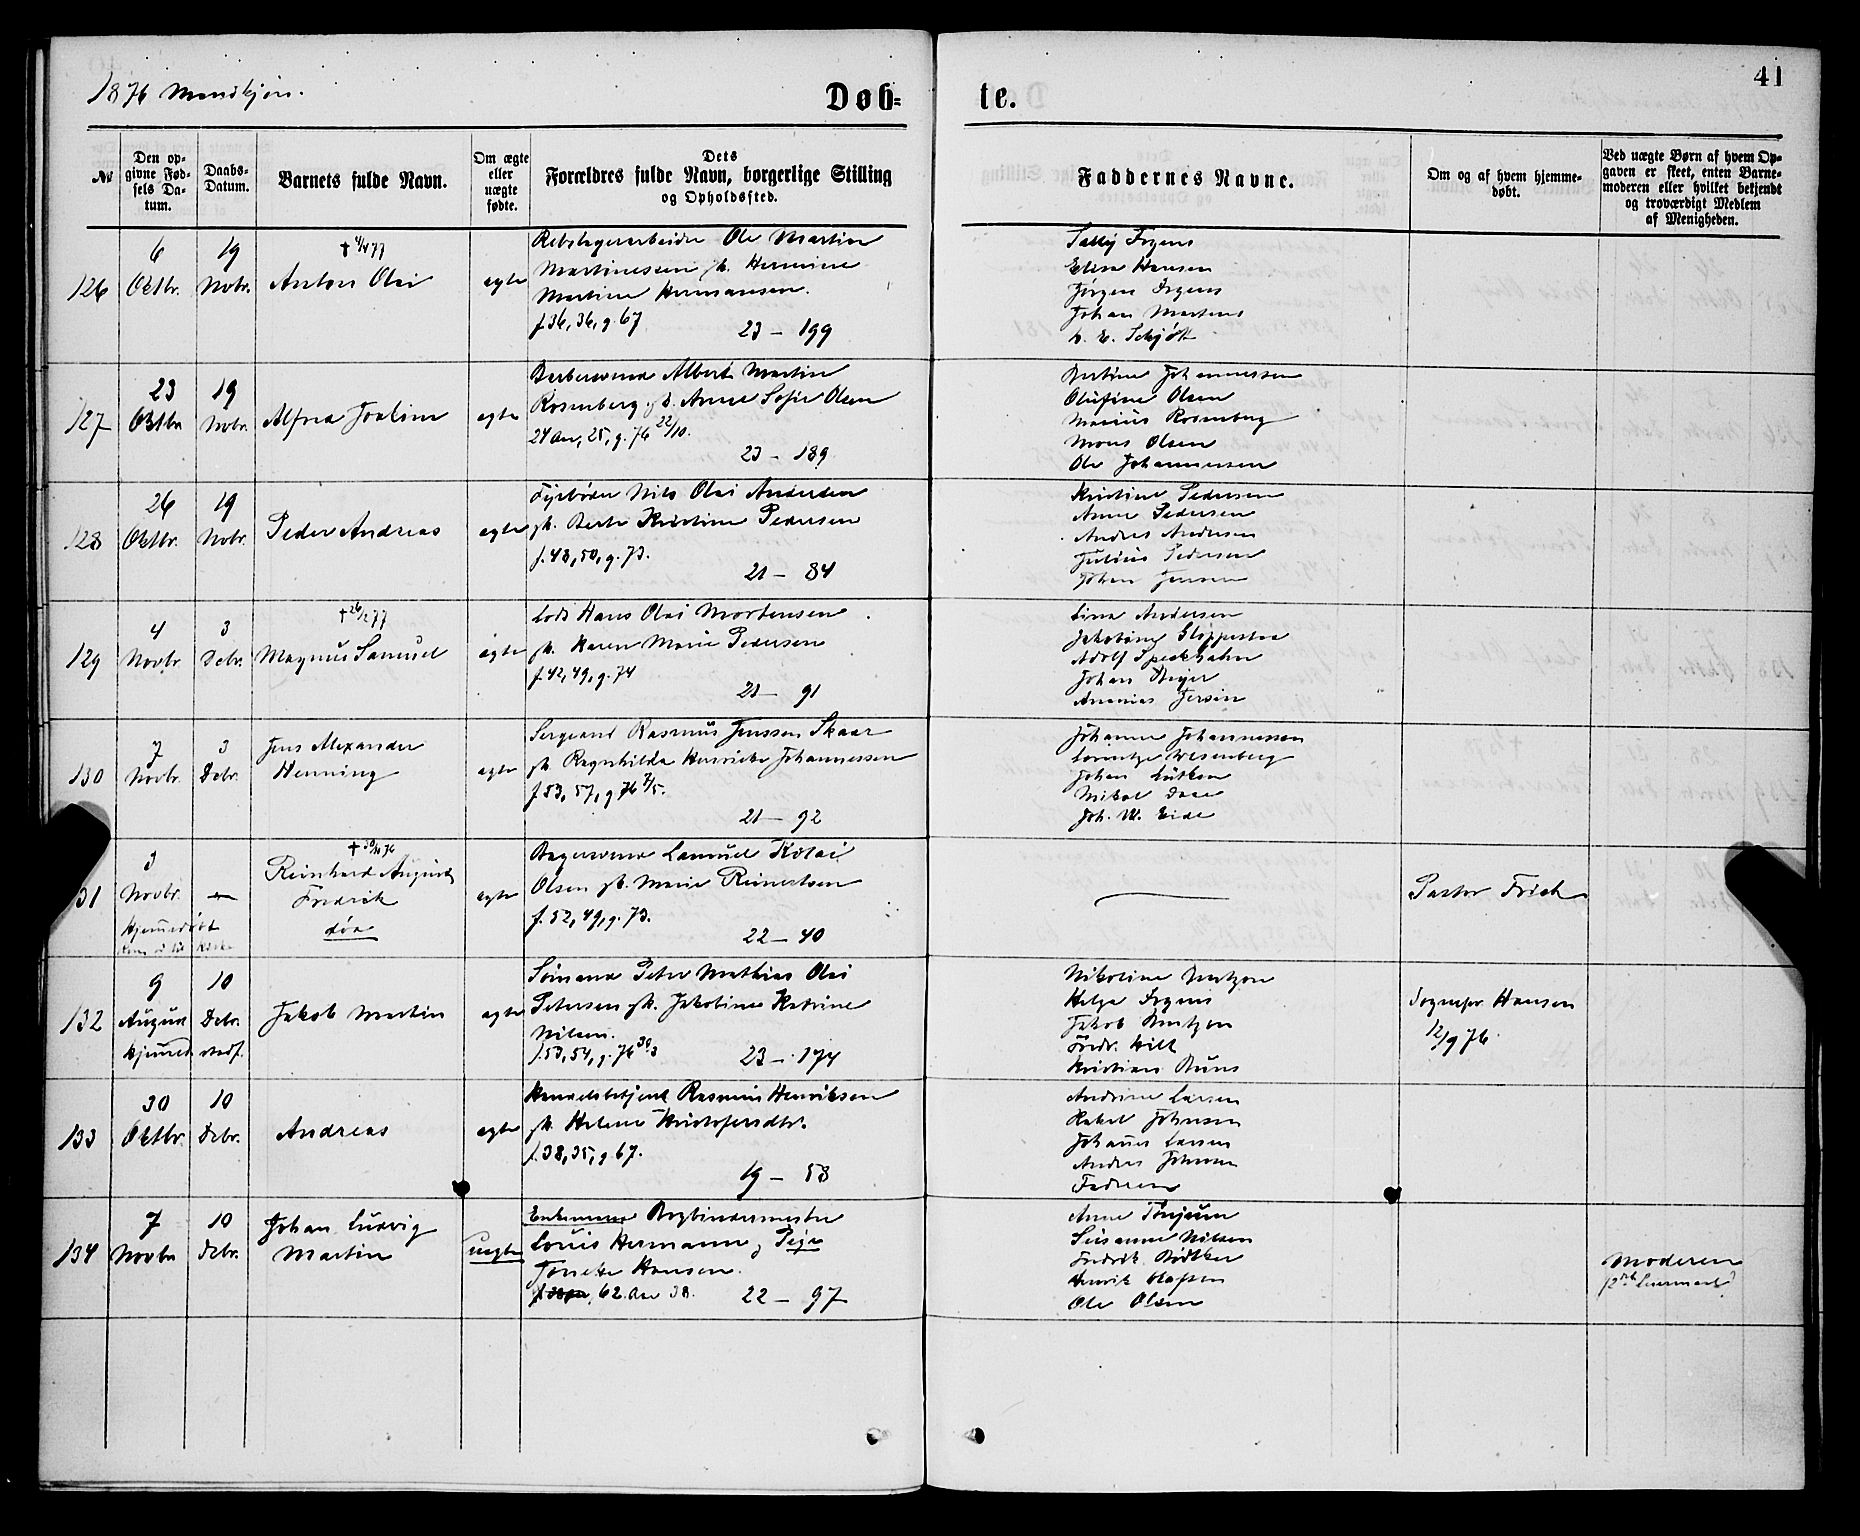 1876 Mandkjøn.
Døb=
te.
41
№
Den op-
givne Fød-
sels Da-
tum.
Daabs-
Datum.
Barnets fulde Navn.
Om ægte
eller
uægte
fødte.
Dets
Forældres fulde Navn, borgerlige Stilling
og Opholdssted.
Faddernes Navne.
Om og af hvem hjemme-
døbt.
Ved uægte Børn af hvem Op-
gaven er skeet, enten Barne-
moderen eller hvilket bekjendt
og troværdigt Medlem
af Menigheden.
126
6
Oktbr.
19
Novbr.
Anton Olai
ægte
Rebslagerarbeider Ole Martin
Martinessen gk. Hermine
Martine Hermansen.
f. 36, 36, g. 67
23 – 199
Sally Irgens
Elisa Hansen
Jørgen Irgens
Johan Martens
127
23
Oktbr
19
Novbr.
Alfred Joakim
ægte
Barbersvend Albert Martin
Rosenberg gk. Anne Sofie Olsen
24 Aar, 25, g. 76 22/10.
23 – 189
Bertine Johannessen
Olufine Olsen
Marius Rosenberg
Mons Olsen
Ole Johannessen
128
26
Oktbr.
19
Novbr.
Peder Andreas
ægte
Fyrbøder Nils Olai Andersen
gk. Berte Kristine Pedersen
f. 48, 50, g. 73.
21 – 84
Kristine Pedersen
Anne Pedersen
Andreas Andersen
Julius Pedersen
Johan Jensen
129
4
Novbr.
3
Debr.
Magnus Samuel
ægte
Lods Hans Olai Mortensen
gk. Karen Marie Pedersen
f. 42, 49, g. 74
21 – 91
Lina Andersen
Adolf Speckhahn
Johan Meyer
130
7
Novbr.
3
Debr.
Jens Alexander
Henning
ægte
Sergeant Rasmus Jenssen Skaar
gk. Ragnhilda Henrikke Johannessen
f. 53, 57, g. 76
21 – 92
Johanne Johannessen
Lorentze Wesenberg
Joh. W. Eide
31
3
Novbr.
—
Hjemmedøbt
Reinhard August
Fredrik
død
ægte
Bagersvend Samuel Nikolai
Olsen gk. Marie Reinertsen
f. 52, 49, g. 73.
22 – 40
Pastor Frich
132
9
August
hjemmedøbt
10
Debr.
Jakob Martin
ægte
Sømand Peter Mathias Olai
Petersen gk. Jakobine Katrine
Nilsen.
f. 53, 54, g. 76
23 – 174
Helga Irgens
Kristian Buns
Sognepr. Hansen
12/9 76.
133
30
Oktbr.
10
Debr.
Andreas
ægte
Handelsbetjent Rasmus Henriksen
gk. Helene Kristofersdtr.
f. 38, 35, g. 67.
19 – 58
Andrine Larsen
Rakel Johnsen
Johannes Larsen
Andreas Johnsen
Faderen
134
7
Novbr
10
Debr.
Johan Ludvig
Martin
uægte
Enkemand Bogbindermester
Louis Hermann, Pige
Tonette Hansen.
62. Aar 38.
22 – 97
Susanne Nilsen
Fredrik Bødtker
Henrik Olafsen
Ole Olsen
Moderen